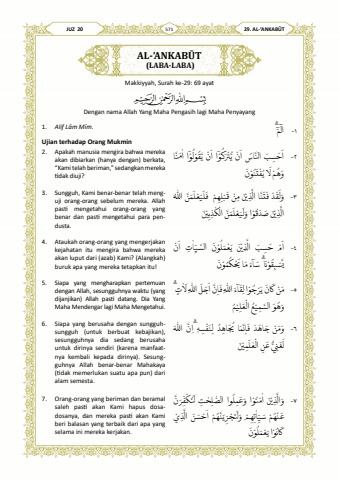 JUZ 20
571
29. AL-‘ANKABŪT
AL-‘ANKABŪT
(LABA-LABA)
Makkiyyah, Surah ke-29: 69 ayat
بِسْمِ اللّٰهِ الرَّحْمٰنِ الرَّحِيْمِ
Dengan nama Allah Yang Maha Pengasih lagi Maha Penyayang
1. Alif Lām Mīm.
الۤمّۤ ۗ -١
Ujian terhadap Orang Mukmin
2. Apakah manusia mengira bahwa mereka
akan dibiarkan (hanya dengan) berkata,
“Kami telah beriman,” sedangkan mereka
tidak diuji?
٢- اَحَسِبَ النَّاسُ اَنْ يُّتْرَكُوْٓا اَنْ يَّقُوْلُوْٓا اٰمَنَّا
وَهُمْ لَا يُفْتَنُوْنَ
3. Sungguh, Kami benar-benar telah meng-
uji orang-orang sebelum mereka. Allah
pasti mengetahui orang-orang yang
benar dan pasti mengetahui para pen-
dusta.
٣- وَلَقَدْ فَتَنَّا الَّذِيْنَ مِنْ قَبْلِهِمْ فَلَيَعْلَمَنَّ اللّٰهُ
الَّذِيْنَ صَدَقُوْا وَلَيَعْلَمَنَّ الْكٰذِبِيْنَ
4. Ataukah orang-orang yang mengerjakan
kejahatan itu mengira bahwa mereka
akan luput dari (azab) Kami? (Alangkah)
buruk apa yang mereka tetapkan itu!
٤- اَمْ حَسِبَ الَّذِيْنَ يَعْمَلُوْنَ السَّيِّاٰتِ اَنْ
يَّسْبِقُوْنَا ۗ سَاۤءَ مَا يَحْكُمُوْنَ
5. Siapa yang mengharapkan pertemuan
dengan Allah, sesungguhnya waktu (yang
dijanjikan) Allah pasti datang. Dia Yang
Maha Mendengar lagi Maha Mengetahui.
٥- مَنْ كَانَ يَرْجُوْا لِقَاۤءَ اللّٰهِ فَاِنَّ اَجَلَ اللّٰهِ لَاٰتٍ ۗ
وَهُوَ السَّمِيْعُ الْعَلِيْمُ
6. Siapa yang berusaha dengan sungguh-
sungguh (untuk berbuat kebajikan),
sesungguhnya dia sedang berusaha
untuk dirinya sendiri (karena manfaat-
nya kembali kepada dirinya). Sesung-
guhnya Allah benar-benar Mahakaya
(tidak memerlukan suatu apa pun) dari
alam semesta.
٦- وَمَنْ جَاهَدَ فَاِنَّمَا يُجَاهِدُ لِنَفْسِهٖ ۗ اِنَّ اللّٰهَ
لَغَنِيٌّ عَنِ الْعٰلَمِيْنَ
7. Orang-orang yang beriman dan beramal
saleh pasti akan Kami hapus dosa-
dosanya, dan mereka pasti akan Kami
beri balasan yang terbaik dari apa yang
selama ini mereka kerjakan.
٧- وَالَّذِيْنَ اٰمَنُوْا وَعَمِلُوا الصّٰلِحٰتِ لَنُكَفِّرَنَّ
عَنْهُمْ سَيِّاٰتِهِمْ وَلَنَجْزِيَنَّهُمْ اَحْسَنَ الَّذِيْ
كَانُوْا يَعْمَلُوْنَ